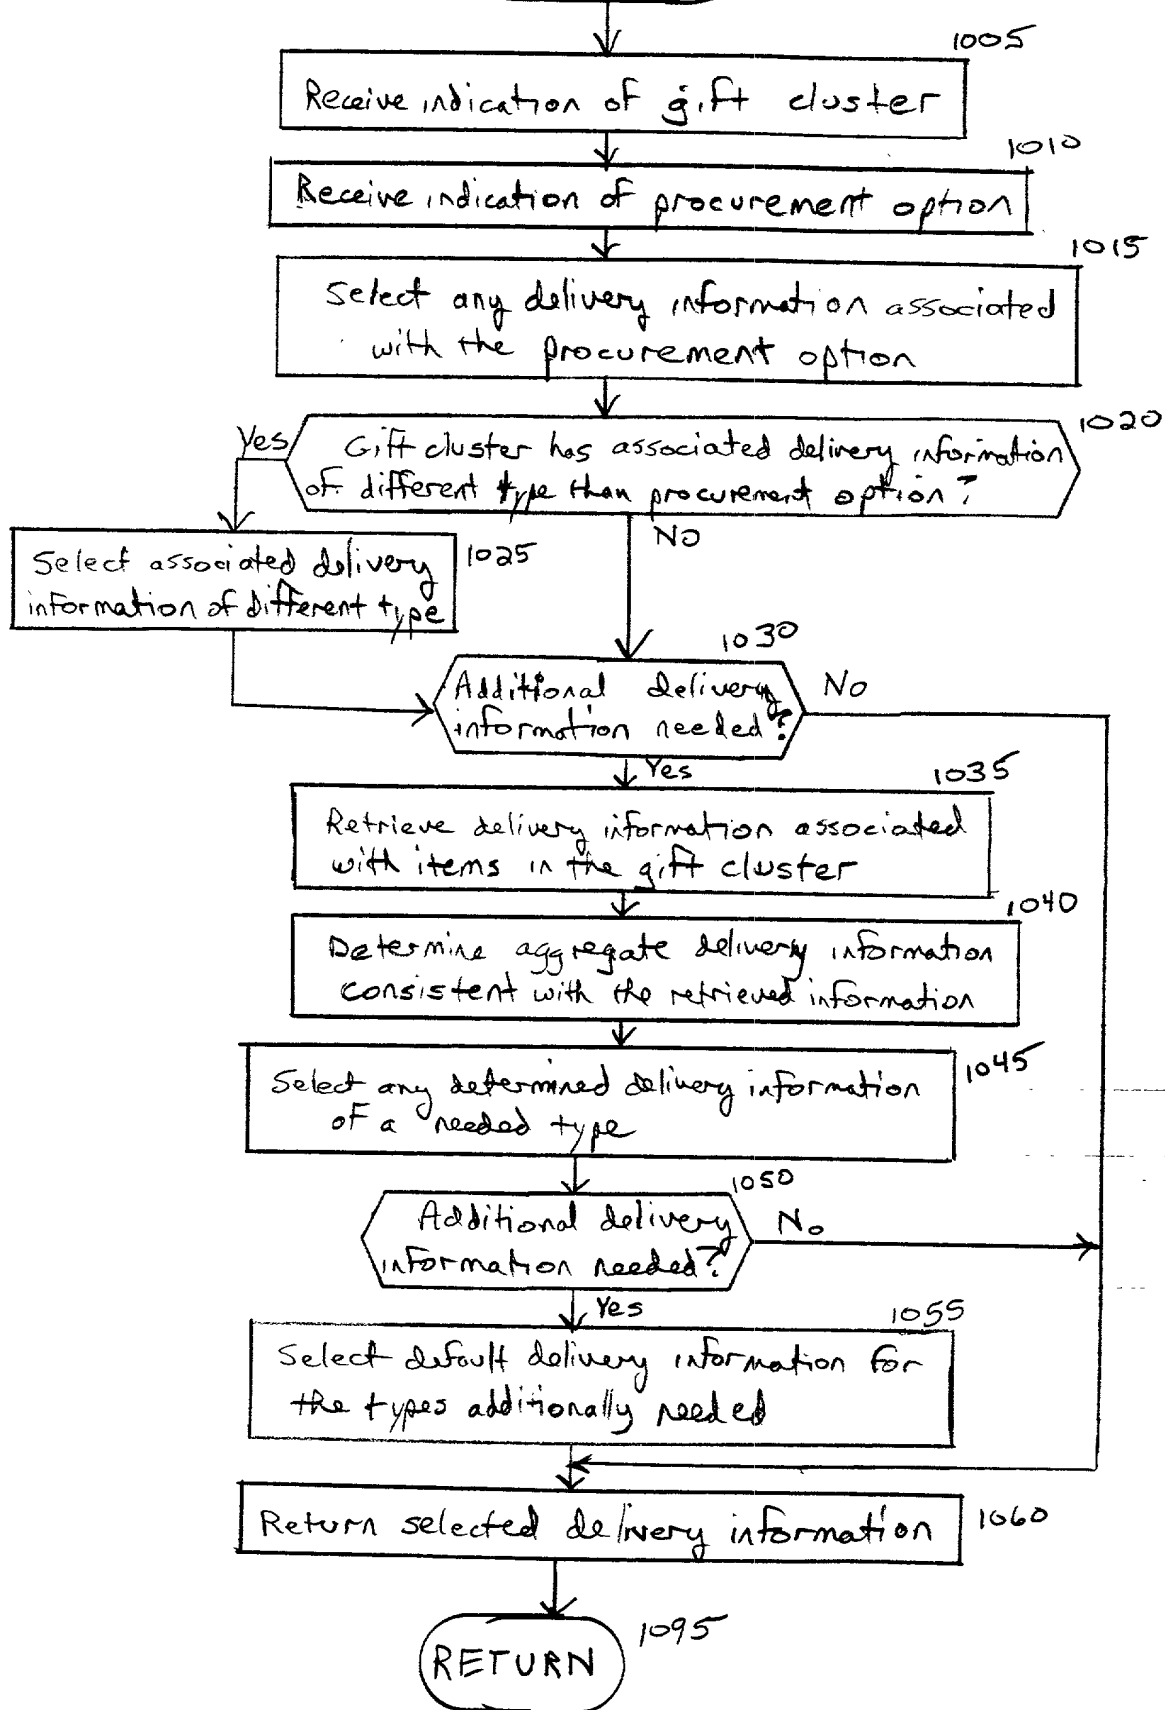 1005
Receive indication of gift cluster
1010
Receive indication of procurement option
1015
Select any delivery information associated
with the procurement option
1020
Yes
Gift cluster has associated delivery information
of different type than procurement option?
No
Select associated delivery
information of different type
1025
1030
Additional delivery
information needed?
No
Yes
1035
Retrieve delivery information associated
with items in the gift cluster
1040
Determine aggregate delivery information
consistent with the retrieved information
1045
Select any determined delivery information
of a needed type
1050
Additional delivery
information needed?
No
Yes
1055
Select default delivery information for
the types additionally needed
Return selected delivery information
1060
1095
RETURN